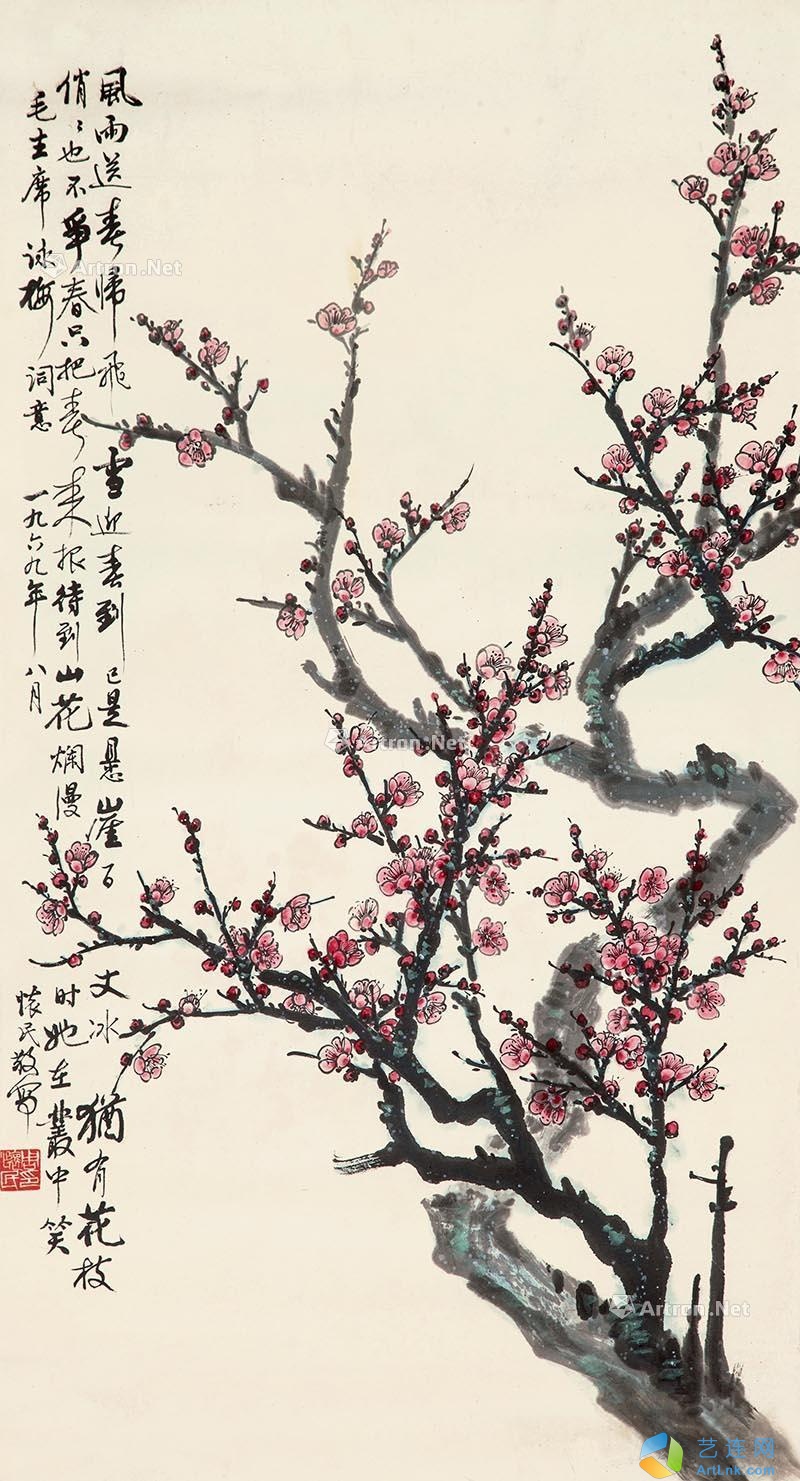 風雨送春歸飛雪迎春到已是懸崖百丈冰猶有花枝
俏〻也不爭春只把春來报待到山花烂漫时她在叢中笑
毛主席詠梅词意 一九六九年八月 懷民敬寫
Artron.Net
Artron.Net
Artron.Net
艺连网
ArtLnk.com